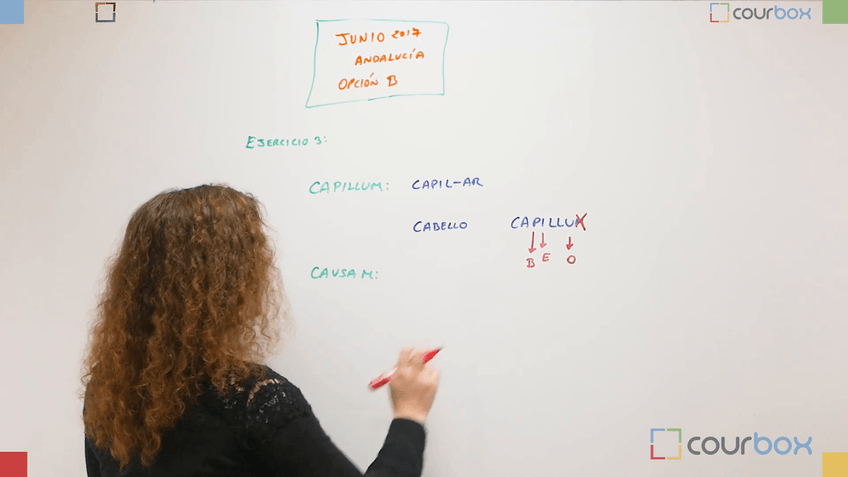 courbox
JUNIO 2017
ANDALUCÍA
OPCIÓN B
EJERCICIO 3:
CAPILLUM: CAPIL-AR
CABELLO CAPILLUM
B E O
CAUSAM:
courbox